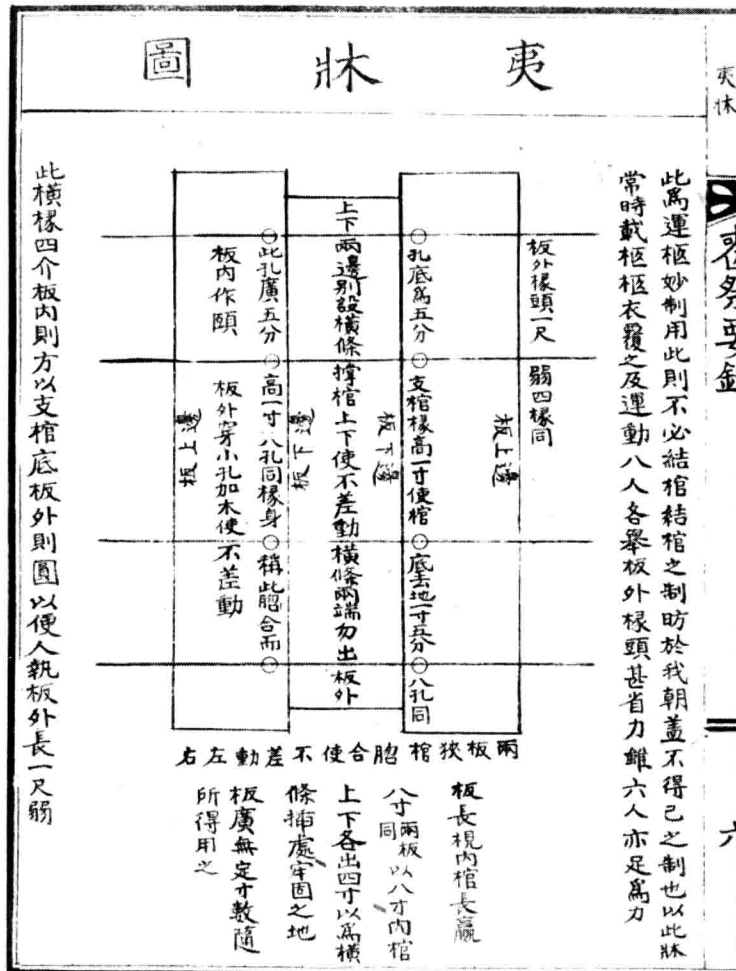 夷牀
喪祭要錄
六
夷牀圖
此爲運柩妙制用此則不必結棺結棺之制昉於我朝盖不得已之制也以此牀
常時載柩柩衣覆之及運動八人各擧板外椽頭甚省力雖六人亦足爲力
板外椽頭一尺弱四椽同
板上邊
孔底爲五分支棺椽高一寸使棺底去地一寸五分八孔同
板下邊
上下兩邊別設橫條撑棺上下使不差動橫條兩端勿出板外
板下邊
此孔廣五分高一寸八孔同椽身稱此䏰合而不差動
板內作頤
板外穿小孔加木使
板上邊
兩板狹棺䏰合使不差動左右
板長視內棺長贏
八寸兩板同以八寸內棺
上下各出四寸以爲橫
條揷處牢固之地
板廣無定寸數隨
所得用之
此橫椽四介板內則方以支棺底板外則圓以便人執板外長一尺弱